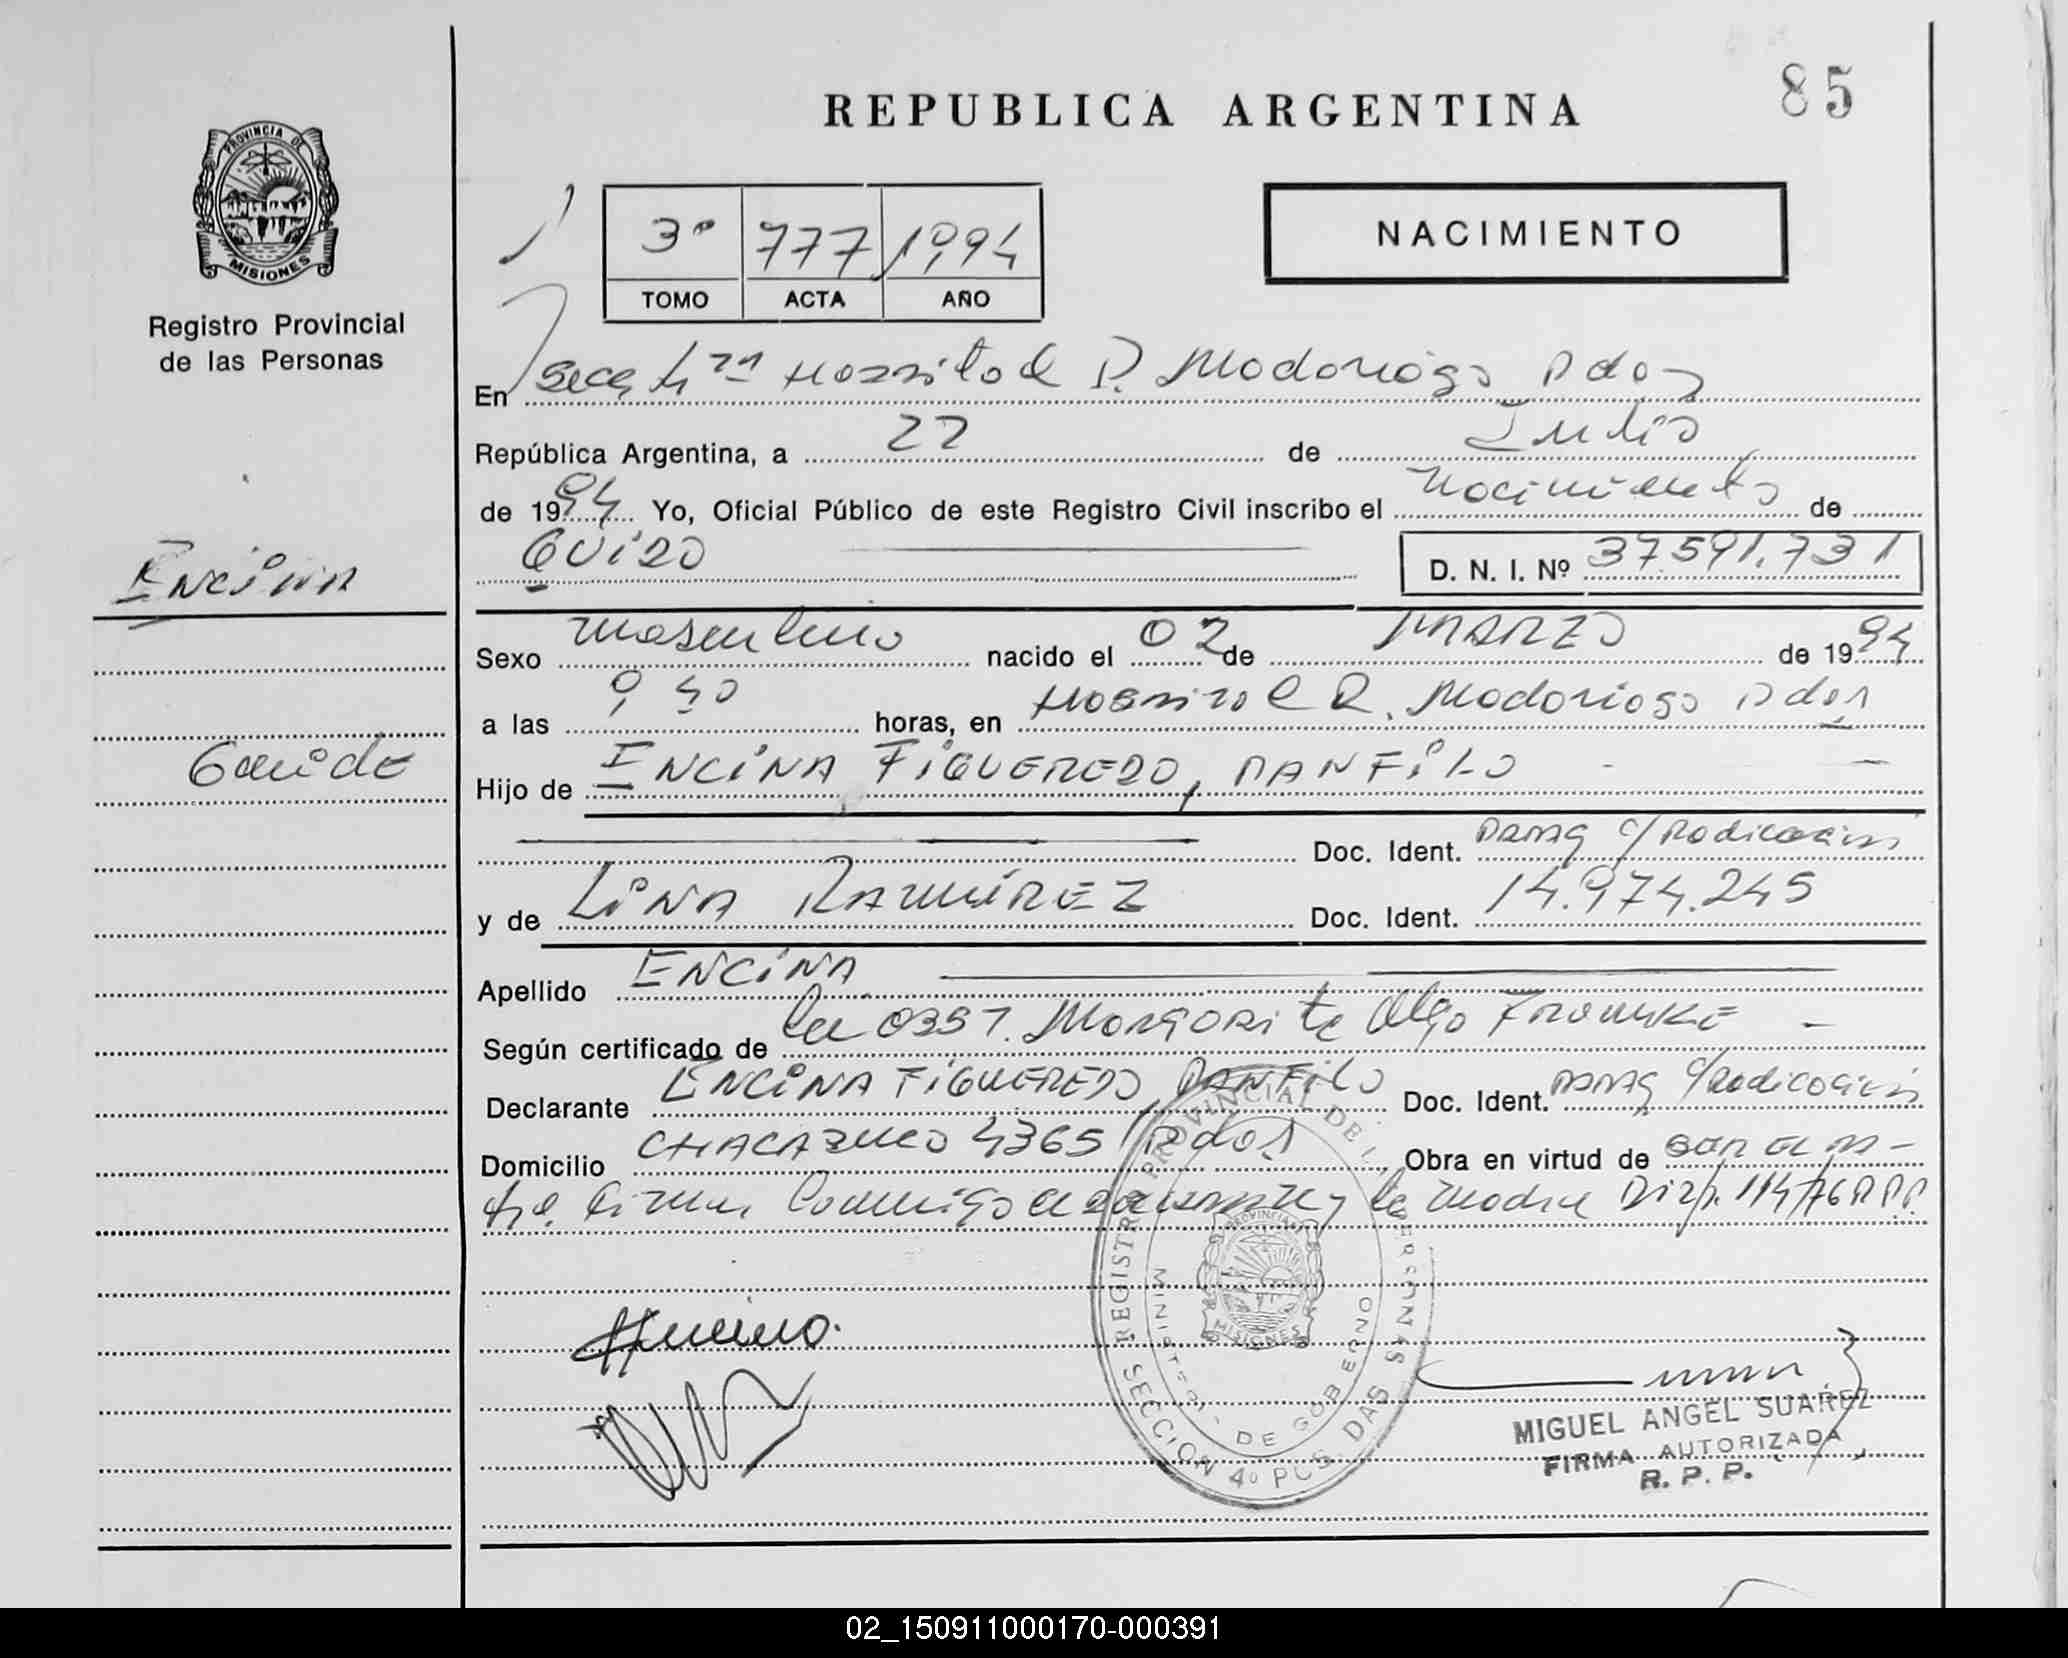 REPUBLICA ARGENTINA
85
PROVINCIA DE
MISIONES
Registro Provincial
de las Personas
3º 777 1994
TOMO ACTA AÑO
NACIMIENTO
En Secc 4ª Hospital R. Madariaga Pdas
República Argentina, a 22 de Julio
de 1994 Yo, Oficial Público de este Registro Civil inscribo el nacimiento de
GUIDO
D. N. I. Nº 37.591.731
Encina
Guido
Sexo masculino nacido el 02 de MARZO de 1994
a las 9,40 horas, en Hospital R. Madariaga Pdas
Hijo de ENCINA FIGUEREDO, PANFILO
Doc. Ident. Parag c/Radicación
y de LINA RAMIREZ Doc. Ident. 14.974.245
Apellido ENCINA
Según certificado de la Obst. Margarita Olga
Declarante ENCINA FIGUEREDO, PANFILO Doc. Ident. Parag c/Radicación
Domicilio CHACABUCO 4365 Pdas Obra en virtud de ser el pa-
dre. Firman Conmigo el declarante y la madre Disp. 114/76 RPP.
REGISTRO PROVINCIAL DE LAS PERSONAS
MINISTERIO DE GOBIERNO
PROVINCIA
MISIONES
SECCION 4º PCS. DAS
MIGUEL ANGEL SUAREZ
FIRMA AUTORIZADA
R. P. P.
02_150911000170-000391